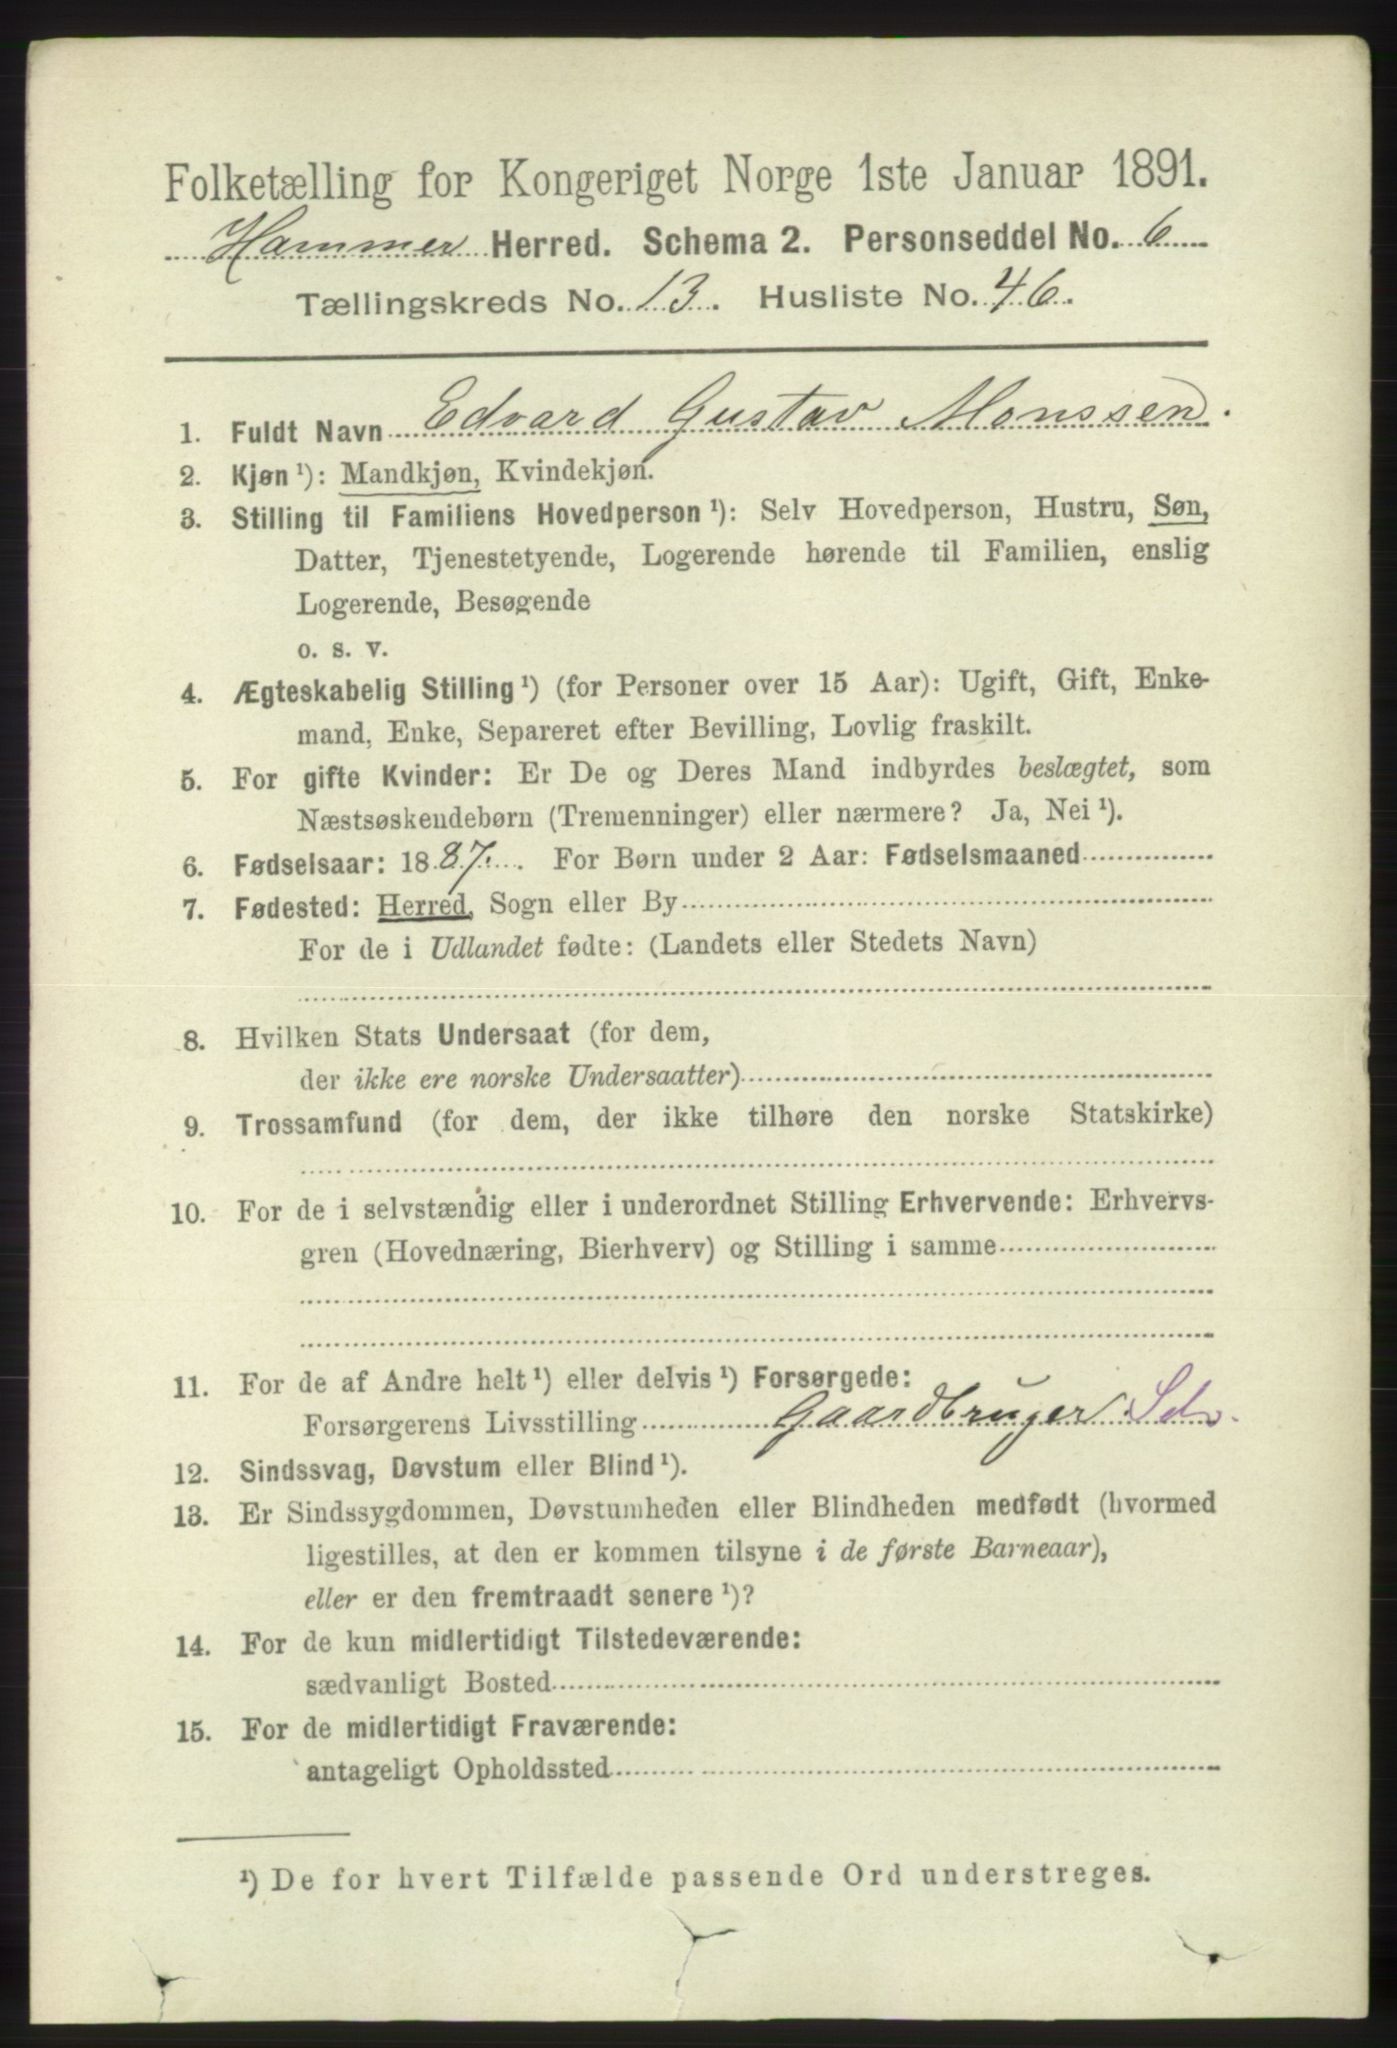 Folketælling for Kongeriget Norge 1ste Januar 1891.
Hammer Herred. Schema 2. Personseddel No. 6
Tællingskreds No. 13. Husliste No. 46.
1. Fuldt Navn Edvard Gustav Monssen.
2. Kjøn ¹): Mandkjøn, Kvindekjøn.
3. Stilling til Familiens Hovedperson ¹): Selv Hovedperson, Hustru, Søn,
Datter, Tjenestetyende, Logerende hørende til Familien, enslig
Logerende, Besøgende
o. s. v.
4. Ægteskabelig Stilling ¹) (for Personer over 15 Aar): Ugift, Gift, Enke-
mand, Enke, Separeret efter Bevilling, Lovlig fraskilt.
5. For gifte Kvinder: Er De og Deres Mand indbyrdes beslægtet, som
Næstsøskendebørn (Tremenninger) eller nærmere? Ja, Nei ¹).
6. Fødselsaar: 1887. For Børn under 2 Aar: Fødselsmaaned
7. Fødested: Herred, Sogn eller By
For de i Udlandet fødte: (Landets eller Stedets Navn)
8. Hvilken Stats Undersaat (for dem,
der ikke ere norske Undersaatter)
9. Trossamfund (for dem, der ikke tilhøre den norske Statskirke)
10. For de i selvstændig eller i underordnet Stilling Erhvervende: Erhvervs-
gren (Hovednæring, Bierhverv) og Stilling i samme
11. For de af Andre helt ¹) eller delvis ¹) Forsørgede:
Forsørgerens Livsstilling Gaardbruger
12. Sindssvag, Døvstum eller Blind ¹).
13. Er Sindssygdommen, Døvstumheden eller Blindheden medfødt (hvormed
ligestilles, at den er kommen tilsyne i de første Barneaar),
eller er den fremtraadt senere ¹)?
14. For de kun midlertidigt Tilstedeværende:
sædvanligt Bosted
15. For de midlertidigt Fraværende:
antageligt Opholdssted
¹) De for hvert Tilfælde passende Ord understreges.